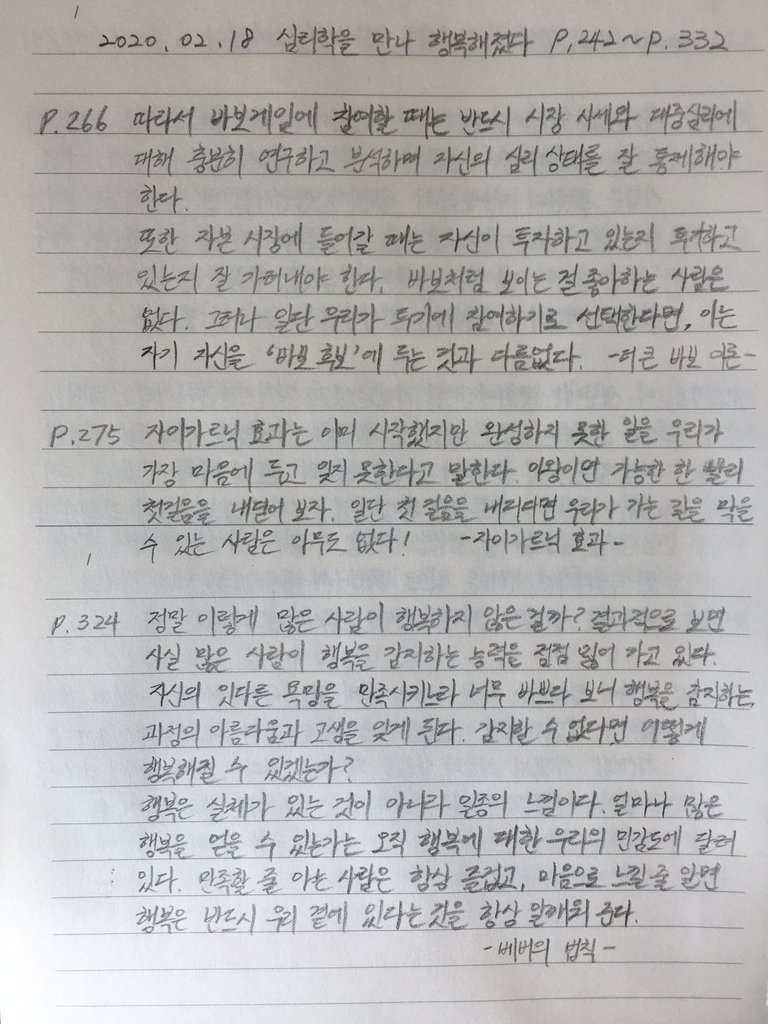 2020.02.18 심리학을 만나 행복해졌다 P.242~P.332
P.266 따라서 바보게임에 참여할 때는 반드시 시장 시세와 대중심리에
대해 충분히 연구하고 분석하며 자신의 심리 상태를 잘 통제해야
한다.
또한 자본 시장에 들어갈 때는 자신이 투자하고 있는지 투기하고
있는지 잘 가려내야 한다. 바보처럼 보이는 걸 좋아하는 사람은
없다. 그러나 일단 우리가 투기에 참여하기로 선택한다면, 이는
자기 자신을 '바보 후보'에 두는 것과 다름없다. -더 큰 바보 이론-
P.275 자이가르닉 효과는 이미 시작했지만 완성하지 못한 일을 우리가
가장 마음에 두고 잊지 못한다고 말한다. 이왕이면 가능한 한 빨리
첫걸음을 내딛어 보자. 일단 첫 걸음을 내디디면 우리가 가는 길을 막을
수 있는 사람은 아무도 없다! -자이가르닉 효과-
P.324 정말 이렇게 많은 사람이 행복하지 않은 걸까? 결과적으로 보면
사실 많은 사람이 행복을 감지하는 능력을 점점 잃어 가고 있다.
자신의 잇다른 욕망을 만족시키느라 너무 바쁘다 보니 행복을 감지하는
과정의 아름다움과 고생을 잊게 된다. 감지할 수 없다면 어떻게
행복해질 수 있겠는가?
행복은 실체가 있는 것이 아니라 일종의 느낌이다. 얼마나 많은
행복을 얻을 수 있는가는 오직 행복에 대한 우리의 민감도에 달려
있다. 만족할 줄 아는 사람은 항상 즐겁고, 마음으로 느낄 줄 알면
행복은 반드시 우리 곁에 있다는 것을 항상 일깨워 준다.
-베버의 법칙-